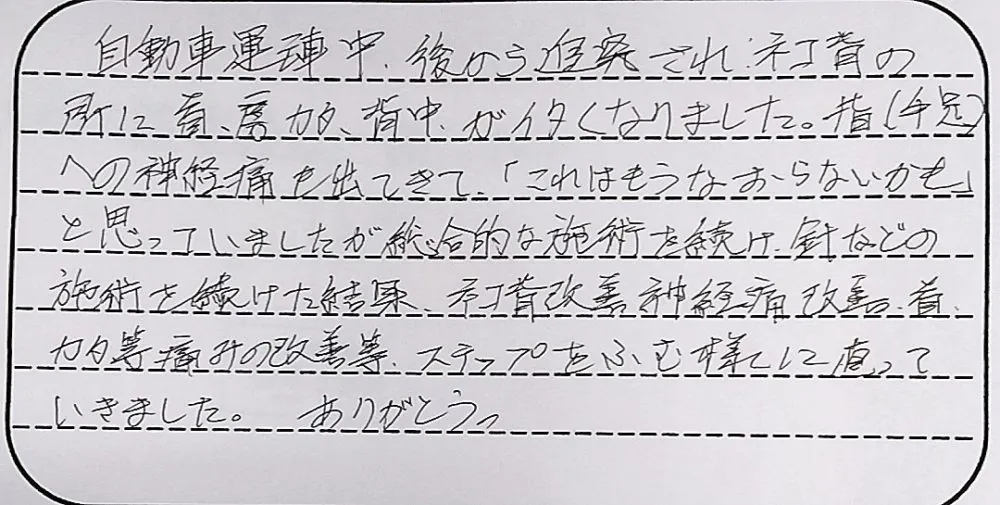 自動車運転中、後から追突され、ネコ背の
所に首、肩、カタ、背中がイタくなりました。指(手足)
への神経痛も出てきて、「これはもうなおらないかも」
と思っていましたが総合的な施術を続け、針などの
施術を続けた結果、ネコ背改善、神経痛改善。首、
カタ等痛みの改善等、ステップをふむ様にして直って
いきました。 ありがとうっ